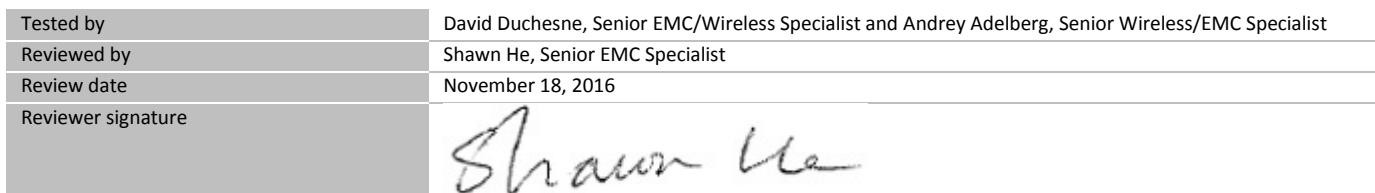 Tested by David Duchesne, Senior EMC/Wireless Specialist and Andrey Adelberg, Senior Wireless/EMC Specialist
Reviewed by Shawn He, Senior EMC Specialist
Review date November 18, 2016
Reviewer signature
Shawn He